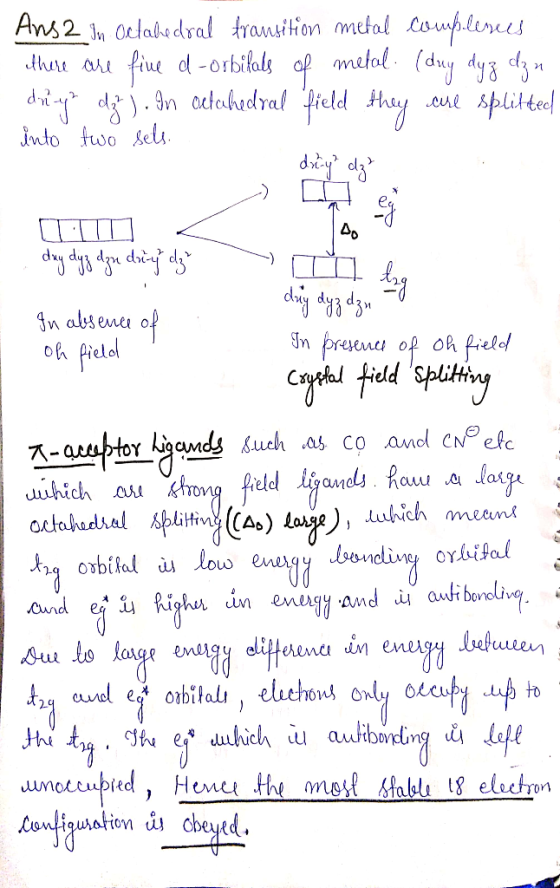 Ans 2 In octahedral transition metal complexes
there are five d-orbitals of metal. (dxy dyz dzx
dx²-y² dz²). In octahedral field they are splitted
into two sets.
dx²-y² dz²
eg*
Δo
dxy dyz dzx dx²-y² dz²
t2g
dxy dyz dzx
In absence of
Oh field
In presence of Oh field
Crystal field Splitting
π-acceptor Ligands such as CO and CN⊖ etc
which are strong field ligands. have a large
octahedral splitting ((Δo) large), which means
t2g orbital is low energy bonding orbital
and eg* is higher in energy and is antibonding.
Due to large energy difference in energy between
t2g and eg* orbitals, electrons only occupy up to
the t2g. The eg* which is antibonding is left
unoccupied, Hence the most stable 18 electron
configuration is obeyed.